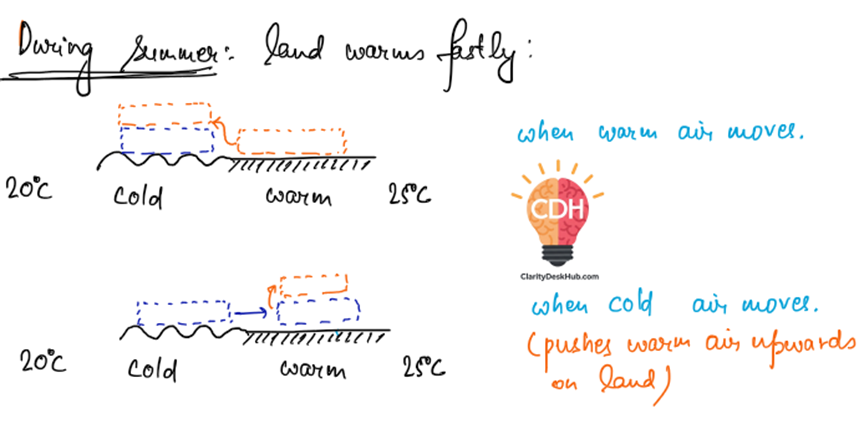 During summer: land warms fastly:
when warm air moves.
20°C cold warm 25°C
CDH
ClarityDeskHub.com
when cold air moves.
(pushes warm air upwards
on land)
20°C cold warm 25°C